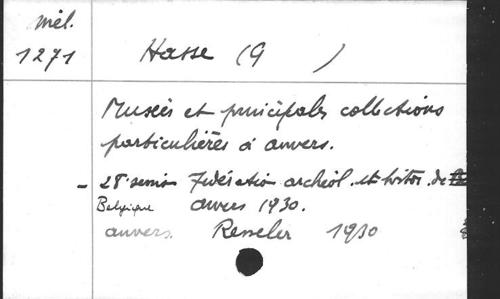 mél.
1271 Hasse (G )
Musées et principales collections
particulières à anvers.
- 28e session Fédération archéol. et histor. de
Belgique anvers 1930.
anvers. Resseler 1930